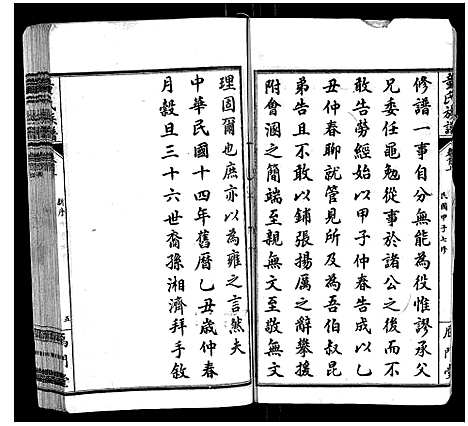 修譜一事自分無能為役惟謬承父
兄委任黽勉從事於諸公之後而不
敢告勞經始以甲子仲春告成以乙
丑仲春聊就管見所及為吾伯叔昆
弟告且不敢以鋪張揚厲之辭攀援
附會溷之簡端至親無文至敬無文
理固爾也庶亦以為雍之言然夫
中華民國十四年舊曆乙丑歲仲春
月穀旦三十六世裔孫湘濟拜手敘
氏族譜
民國甲子七修
新序
五